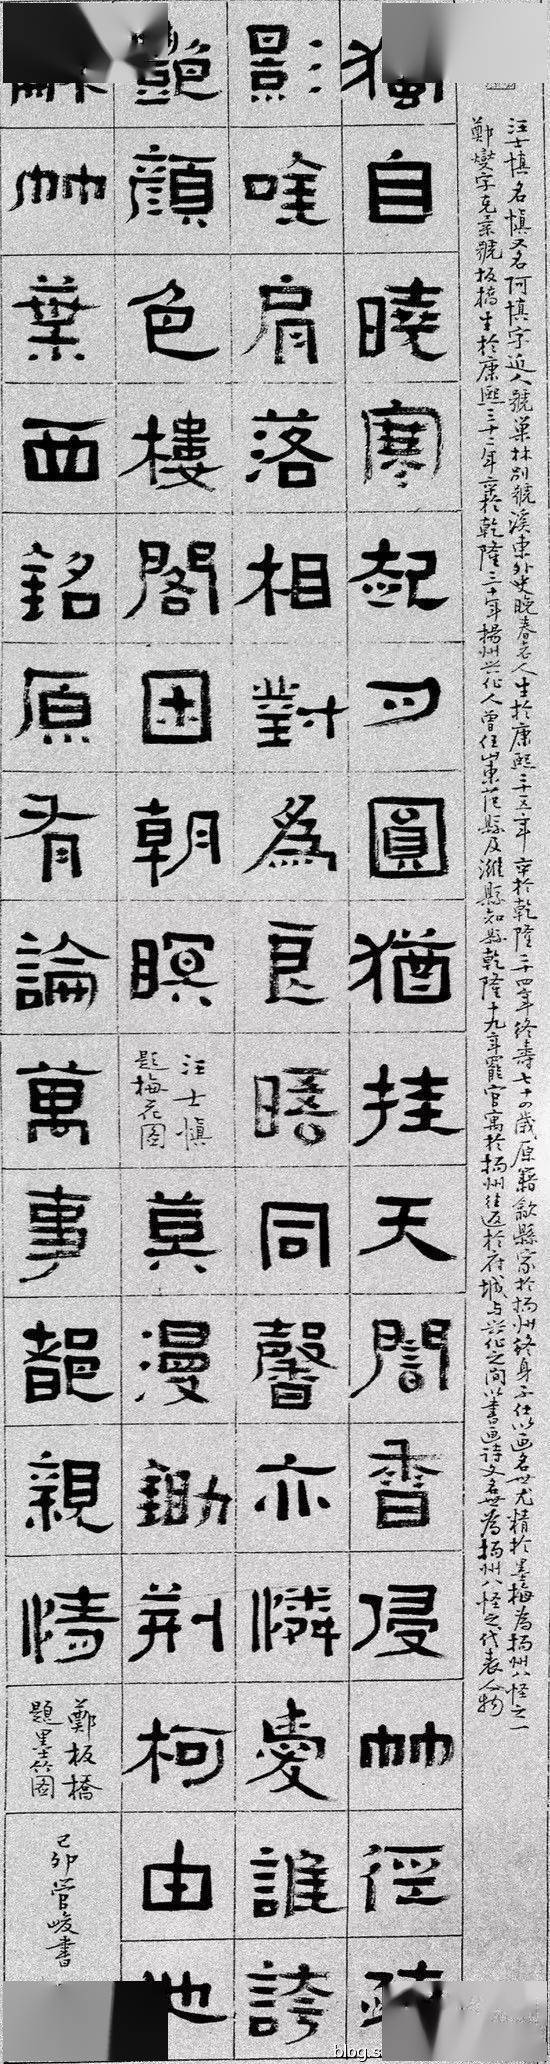 汪士慎名慎又名阿慎字近人號巢林別號溪東外史晚春老人生於康熙二十五年卒於乾隆二十四年終壽七十四歲原籍歙縣家於揚州終身不仕以画名世尤精於墨梅為揚州八怪之一
鄭燮字克柔號板橋生於康熙三十二年卒於乾隆三十年揚州兴化人曾任山東范縣及濰縣知縣乾隆十九年罷官寓於揚州往返於府城与兴化之间以書画詩文名世為揚州八怪之代表人物
獨自曉寒起月圓猶挂天誾香侵竹徑疎
影唫肩落相對為良晤同馨亦憐愛誰誇
艷顏色樓閣困朝暝
汪士慎
題梅花图
莫漫鋤荆柯由他
竹葉西銘原有論萬事都親情
鄭板橋
題墨竹图
己卯管峻書
blog.s